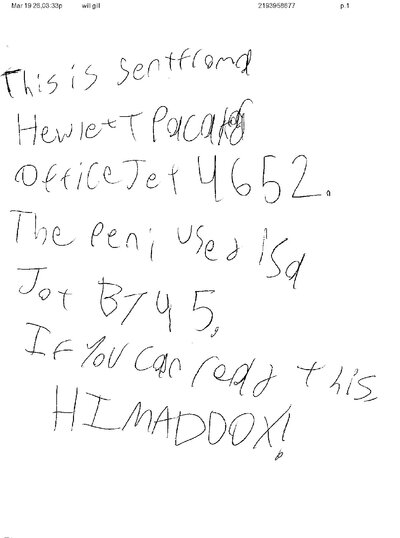 Mar 19 26,03:33p will gill 2193958677 p.1
This is sentfroma
Hewlett Pacard
OfficeJet 4652.
The pen i used isa
Jot B745.
If You can read this
HI MADDOX!